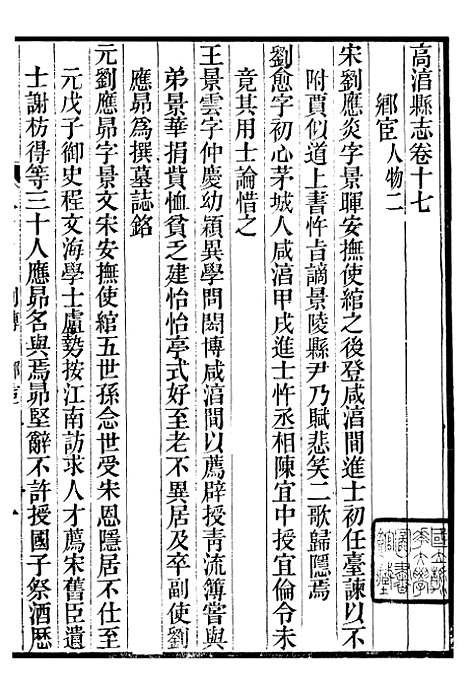 高淳縣志卷十七
鄉宦 人物二
宋劉應炎字景暉安撫使綰之後登咸淳間進士初任臺諫以不
附賈似道上書忤旨謫景陵縣尹乃賦悲笑二歌歸隱焉
劉愈字初心茅城人咸淳甲戌進士忤丞相陳宜中授宜倫令未
竟其用士論惜之
王景雲字仲慶幼穎異學問閎博咸淳間以薦辟授青流簿嘗與
弟景華捐貲恤貧乏建怡怡亭式好至老不異居及卒副使劉
應昴爲撰墓誌銘
元劉應昴字景文宋安撫使綰五世孫念世受宋恩隱居不仕至
元戊子御史程文海學士盧勢按江南訪求人才薦宋舊臣遺
士謝枋得等三十人應昴名與焉昴堅辭不許授國子祭酒歷